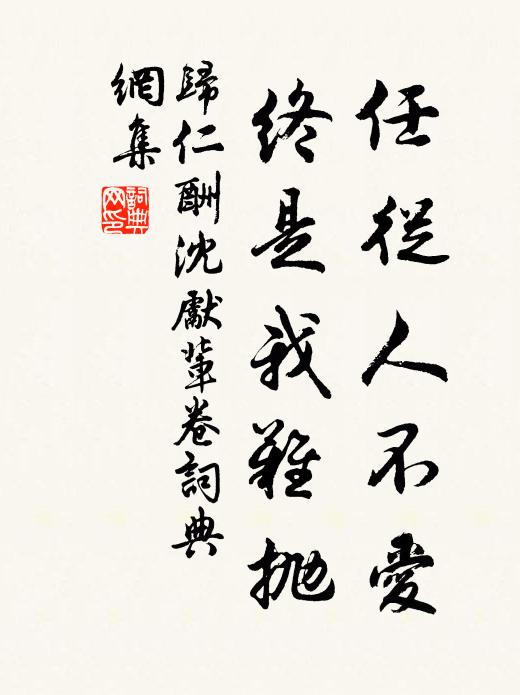 任從人不愛
終是我難拋
歸仁酬沈獻輩卷詞典
網集
詞典網印